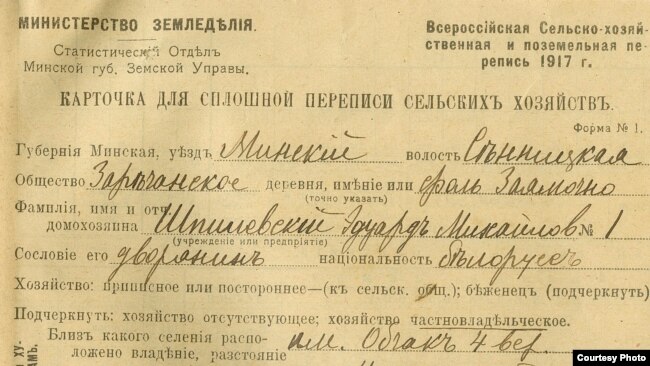 МИНИСТЕРСТВО ЗЕМЛЕДѢЛІЯ.
Статистическій Отдѣлъ
Минской губ. Земской Управы.
Всероссійская Сельско-хозяй-
ственная и поземельная пе-
репись 1917 г.
КАРТОЧКА ДЛЯ СПЛОШНОЙ ПЕРЕПИСИ СЕЛЬСКИХЪ ХОЗЯЙСТВЪ.
Форма № 1.
Губернія Минская, уѣздъ Минскій волость Сѣнницкая
Общество Зарѣчанское деревня, имѣніе или фоль Заямочно
(точно указать)
Фамилія, имя и отч.
домохозяина Шпилевскій Эдуардъ Михайлов № 1
(учрежденіе или предпріятіе)
Сословіе его дворянинъ національность бѣлорусъ
Хозяйство: приписное или постороннее—(къ сельск. общ.); бѣженец (подчеркнуть)
Подчеркнуть: хозяйство отсутствующее; хозяйство частновладѣльческое.
Близ какого селенія распо-
ложено владѣніе, разстояніе 4 вер
Courtesy Photo